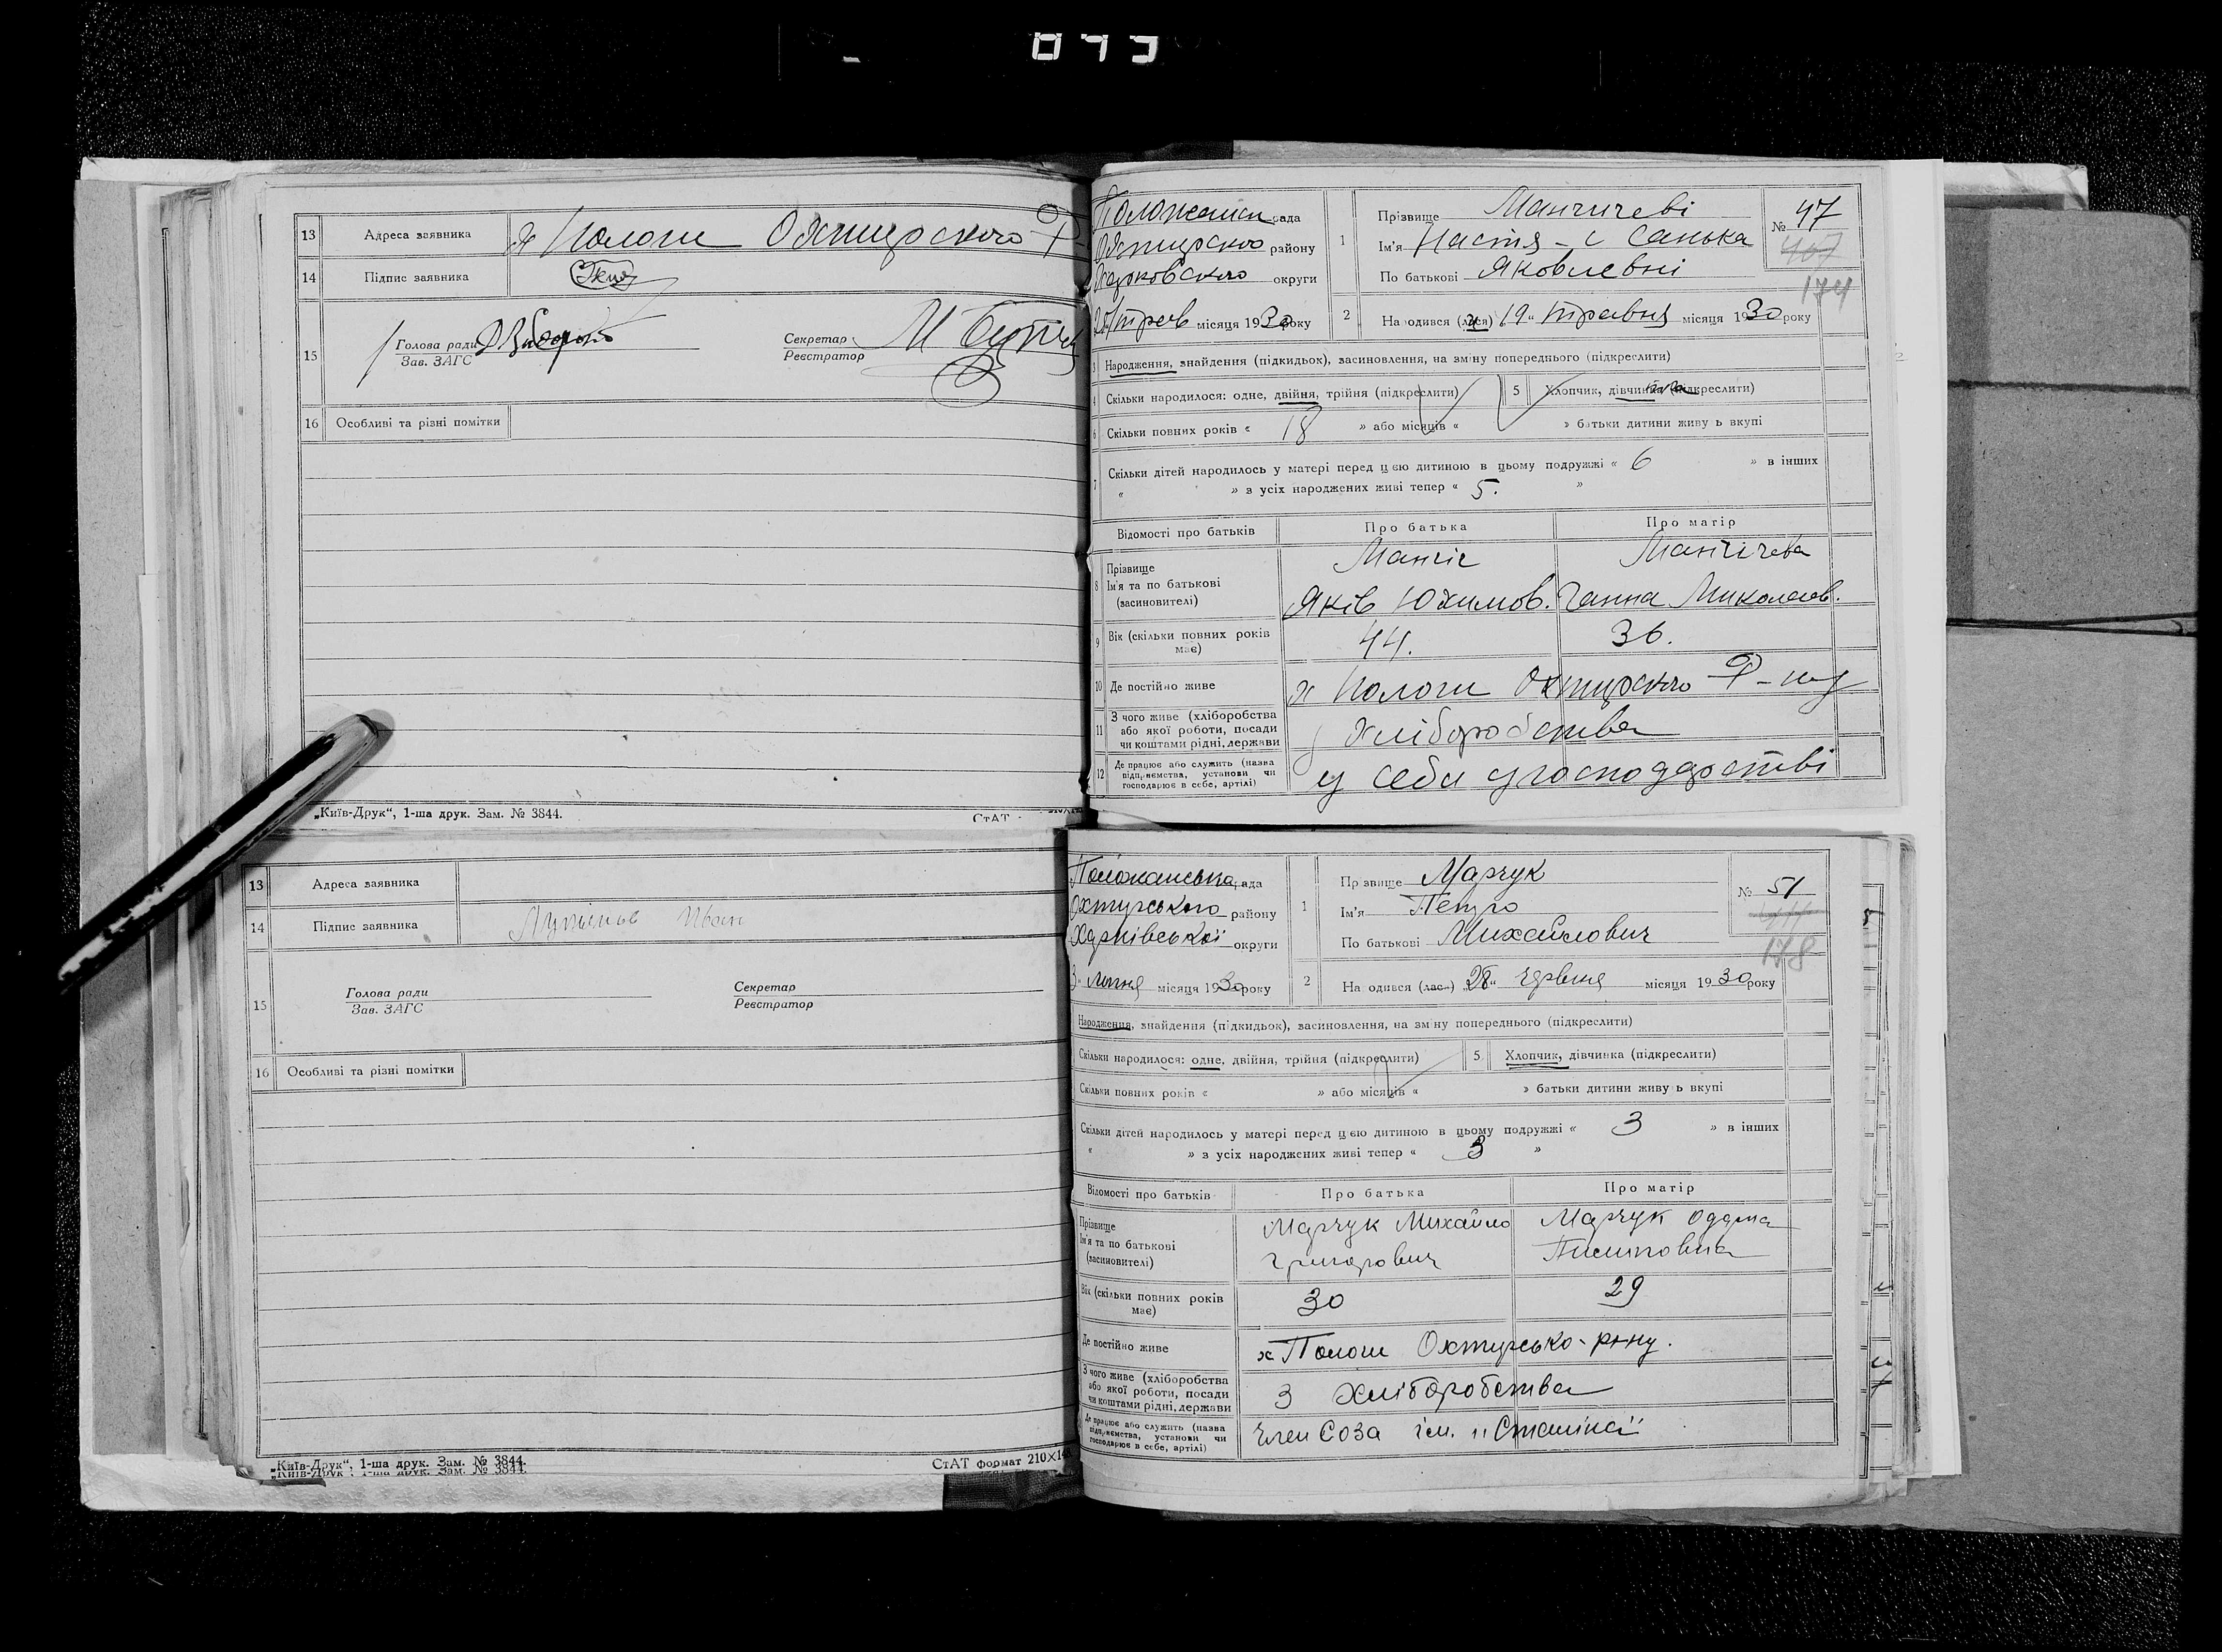 13 Адреса заявника х Пологи Охтирского Р-
14 Підпис заявника
15 Голова ради
Зав. ЗАГС
Секретар
Реєстратор
16 Особливі та різні помітки
„Київ-Друк“, 1-ша друк. Зам. № 3844.
СтАТ
рада
Охтирского району
Харковского округи
місяця 1930 року
1 Прізвище Манчичеві
Ім'я Настя - і Санька
По батькові Яковлевні
№ 47
174
2 Народився (лася) „19“ травня місяця 1930 року
3 Народження, знайдення (підкидьок), засиновлення, на зміну попереднього (підкреслити)
4 Скільки народилося: одне, двійня, трійня (підкреслити) 5 Хлопчик, дівчинка (підкреслити)
6 Скільки повних років « 18 » або місяців « » батьки дитини живуть вкупі
7 Скільки дітей народилось у матері перед цією дитиною в цьому подружжі « 6 » в інших
« » з усіх народжених живі тепер « 5. »
Відомості про батьків Про батька Про матір
8 Прізвище
Ім'я та по батькові
(засиновителі)
Манчич
Яків Юхимов.
Манчічева
Ганна Миколаєв.
9 Вік (скільки повних років має) 44. 36.
10 Де постійно живе х Пологи Охтирского Р-ну
11 З чого живе (хліборобства
або якої роботи, посади
чи коштами рідні, держави
хліборобства
12 Де працює або служить (назва
підприємства, установи чи
господарює в себе, артілі)
у себи у господарстві
13 Адреса заявника
14 Підпис заявника
15 Голова ради
Зав. ЗАГС
Секретар
Реєстратор
16 Особливі та різні помітки
„Київ-Друк“, 1-ша друк. Зам. № 3844.
СтАТ формат 210×14
Положанська рада
Охтурського району
Харківської округи
3“ липня місяця 1930 року
1 Прізвище Марчук
Ім'я Петро
По батькові Михайлович
№ 51
178
2 Народився (лась) „28“ червня місяця 1930 року
Народження, знайдення (підкидьок), засиновлення, на зміну попереднього (підкреслити)
Скільки народилося: одне, двійня, трійня (підкреслити) 5 Хлопчик, дівчинка (підкреслити)
Скільки повних років « » або місяців « » батьки дитини живуть вкупі
Скільки дітей народилось у матері перед цією дитиною в цьому подружжі « 3 » в інших
« » з усіх народжених живі тепер « 3 »
Відомості про батьків Про батька Про матір
Прізвище
Ім'я та по батькові
(засиновителі)
Марчук Михайло
Григорович
Марчук
Вік (скільки повних років має) 30 29
Де постійно живе х Пологи Охтурсько-рну.
З чого живе (хліборобства
або якої роботи, посади
чи коштами рідні, держави
З хліборобства
Де працює або служить (назва
підприємства, установи чи
господарює в себе, артілі)
Член Соза ім. „Сталіна“